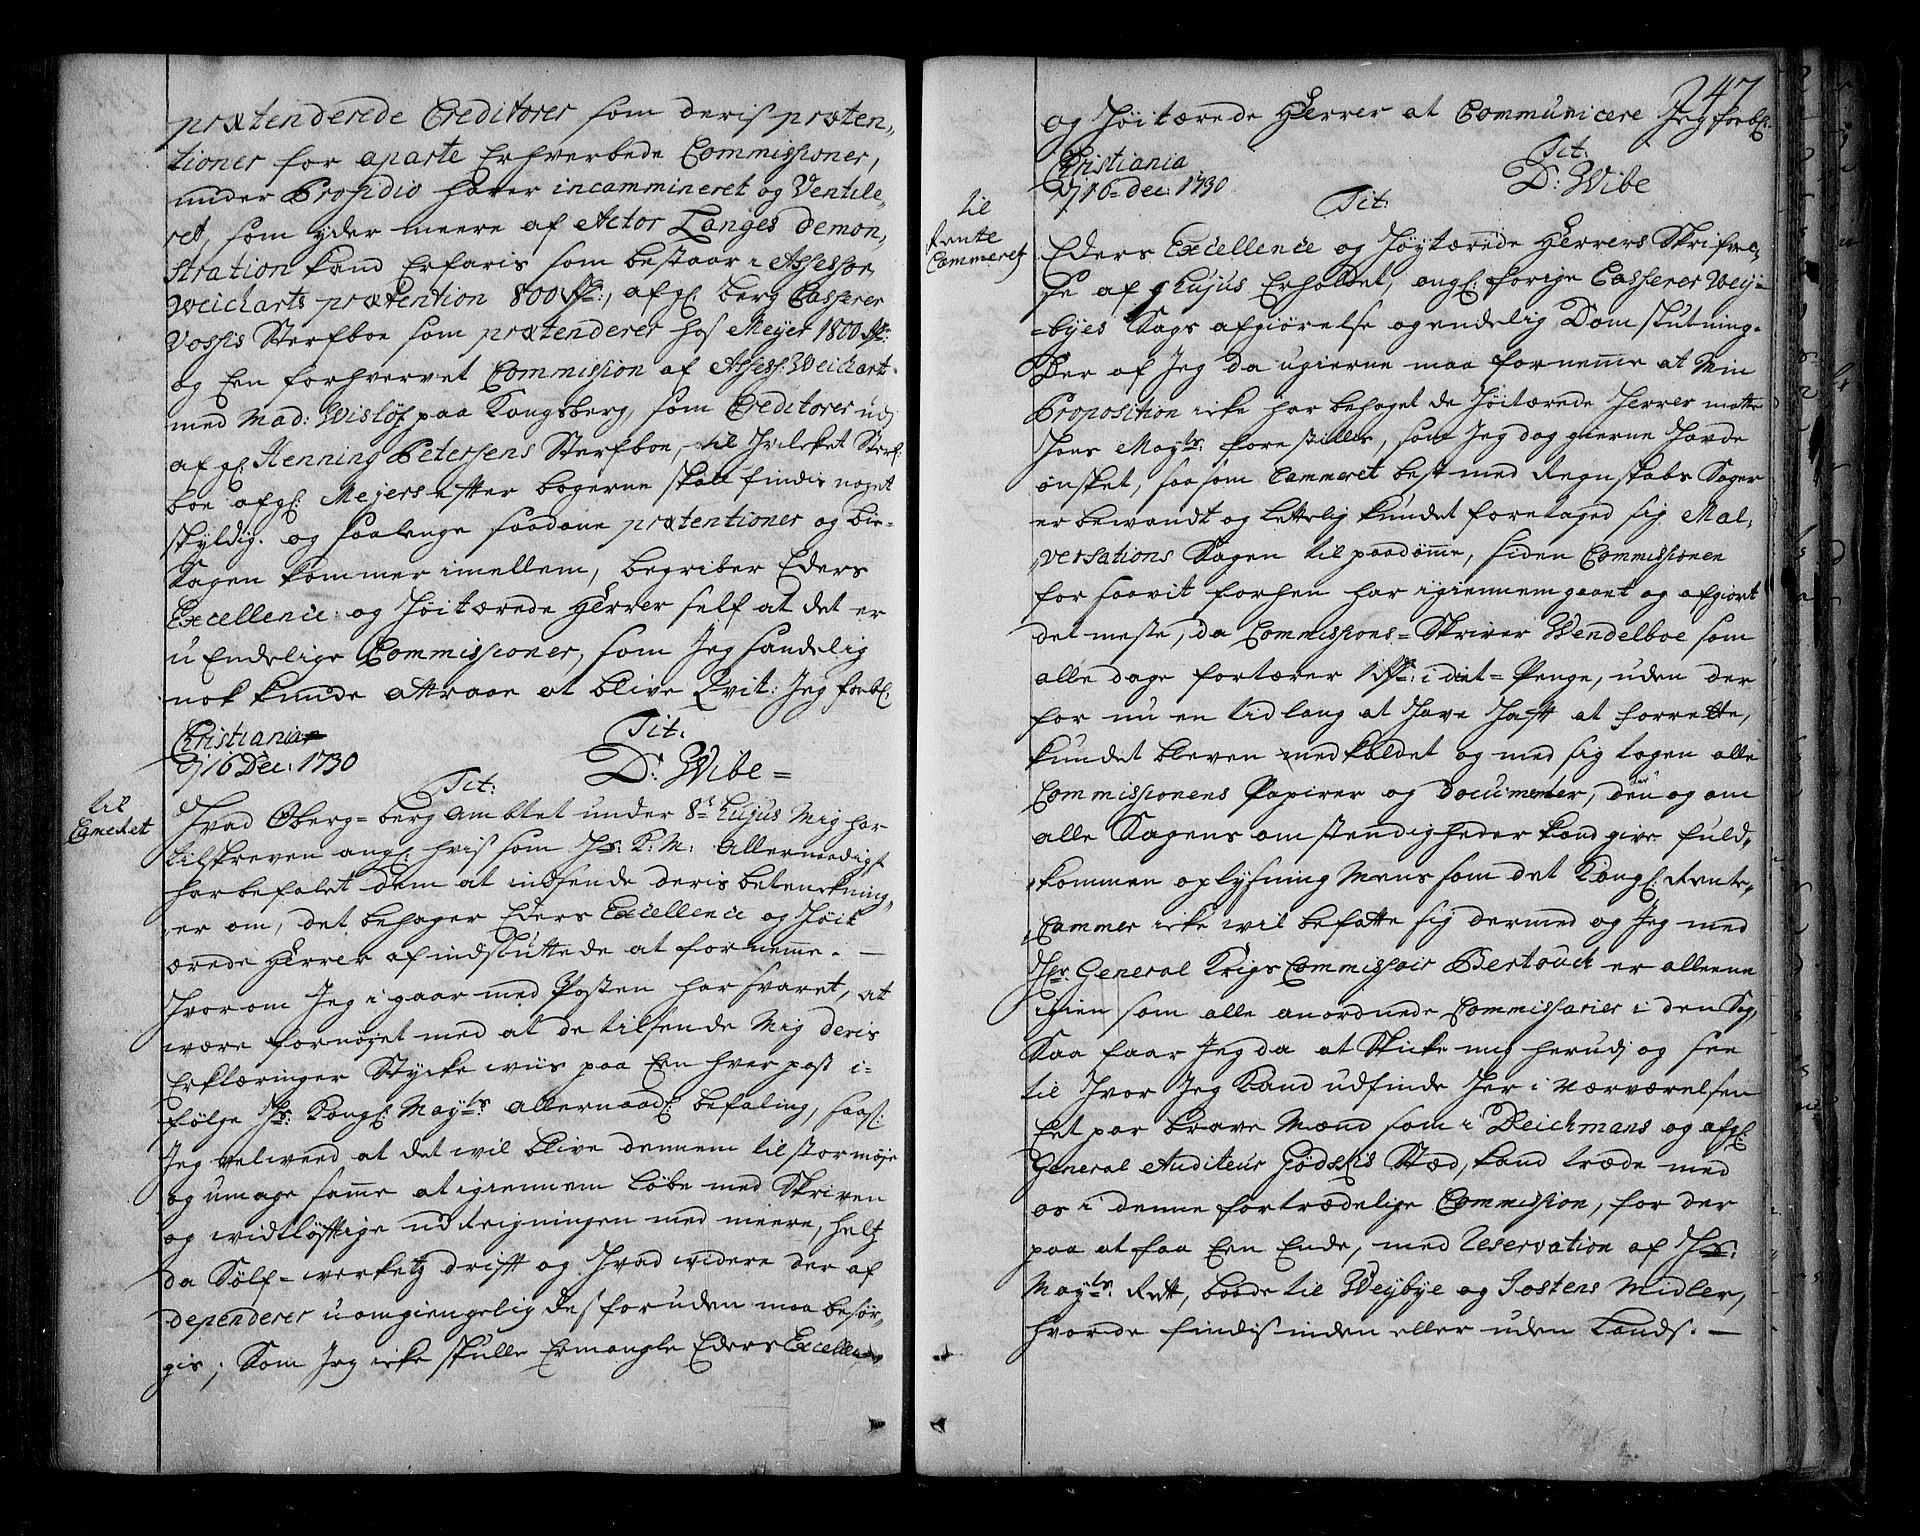 prætenderede Creditorer som deris præten,
tioner for aparte Erhverbede Commissioner,
under Prosidio haver incammineret og Ventile,
ret, som yder meere af Actor Langes demon,
stration kand Erfaris som bestaar i Assessor
Weicharts prætention 800 Rdr:, afg: berg Casserer
Vossis Sterfboe som prætenderer hos Meyer 1800 Rdr:
og Een forhvervet Commission af Assess: Weichart
med Mad: Wisløf paa Kongsberg, som Creditorer udj
af g: Henning Petersens Sterfboe, til hvilcket Sterf,
boe afg: Mejers efter bøgerne skall findis noget
skyldig. og saalenge saadane prætentioner og bie-
Sagen kommer imellem, begriber Eders
Excellence og Høitærede Herrer self at det er
u Endelige Commissioner, som Jeg sandelig
nok kunde attraae at blive Qvit: Jeg forbl:
Christiania Tit:
dj 16 Dec: 1730 D: Wibe =
Tit:
til
Camerlet
Hvad Oberg=berg Ambtet under 8de hujus Mig har
tilskreven ang: hvis som Hs: K: M: Allernædigst
har befalet dem at indsende deris betenckning,
er om, det behager Eders Excellence og Høit
ærede Herrer af indsluttede at fornemme. —
Hvorom Jeg i gaar med Posten har svaret, at
være fornøjet med at de tilsende Mig deris
Erklæringer Stycke wiis paa Een hver post i=
følge Hs: Kongl: Mayts: allernaad: befaling, saas:
Jeg vel weed at det wil blive dennem til stor møje
og umage samme at igiennem Løbe med Skriven
og widtløftige udregningen med meere, helst
da Sølf-werketz drift og Hvad widere der af
dependerer uomgiengelig des foruden maa besør,
gis; Som Jeg icke skulle Ermangle Eders Excellence
247
og Høitærede Herrer at Communicere Jeg forbl:
Christiania Tit:
dj 16 dec: 1730 D: Wibe
Tit:
til
Rente
Cammeret
Eders Excellence og Høytærede Herrers Skrifvel,
se af hujus Erholdet, angl: forige Casserer Wey=
=byes Sags afgiørelse og endelig Dom slutning.
Der af Jeg da ugierne maa fornemme at Min
Proposition icke har behaget de Høitærede Herrer motte
Hans Mayts: forestilles, som Jeg dog gierne Havde
ønsket, saasom Cammeret best med Regnskabs Sager
er bewandt og lettelig kundet foretaged sig Mal,
versations Sagen til paadømme, siden Commissionen
for saavit forhen har igiennemgaaet og afgiort
det meste, da Commissions=Skriver Wendelboe som
alle dage fortærer 1 Rdr: i diet=Penge, uden der
for nu en tidlang at Have Haft at forrette,
kundet bleven medkaldet og med sig tagen alle
Commissionens Papirer og Documenter, den og om
alle Sagens omstendigheder kand give fuld,
kommen oplysning Mens som det Kongl: Rente,
Cammer icke wil befatte sig dermed og Jeg med
Hr: General Krigs Commissair Bertouch er alleene
igien som alle anordnede Commissarier i den Sag,
Saa faar Jeg da at Skicke mig herudj og see
til Hvor Jeg Kand udfinde Her i Nærværelsen
Eet par brave Mænd som i Deichmans og afgl:
General Auditeur Jødskis Stæd, kand træde med
os i denne fortrædelige Commission, for der
paa at faa Een Ende, med Reservation af Hs:
Mayts: Rett, baade til Weybye og Jostens Midler,
hvor de findis inden eller uden Lands. —